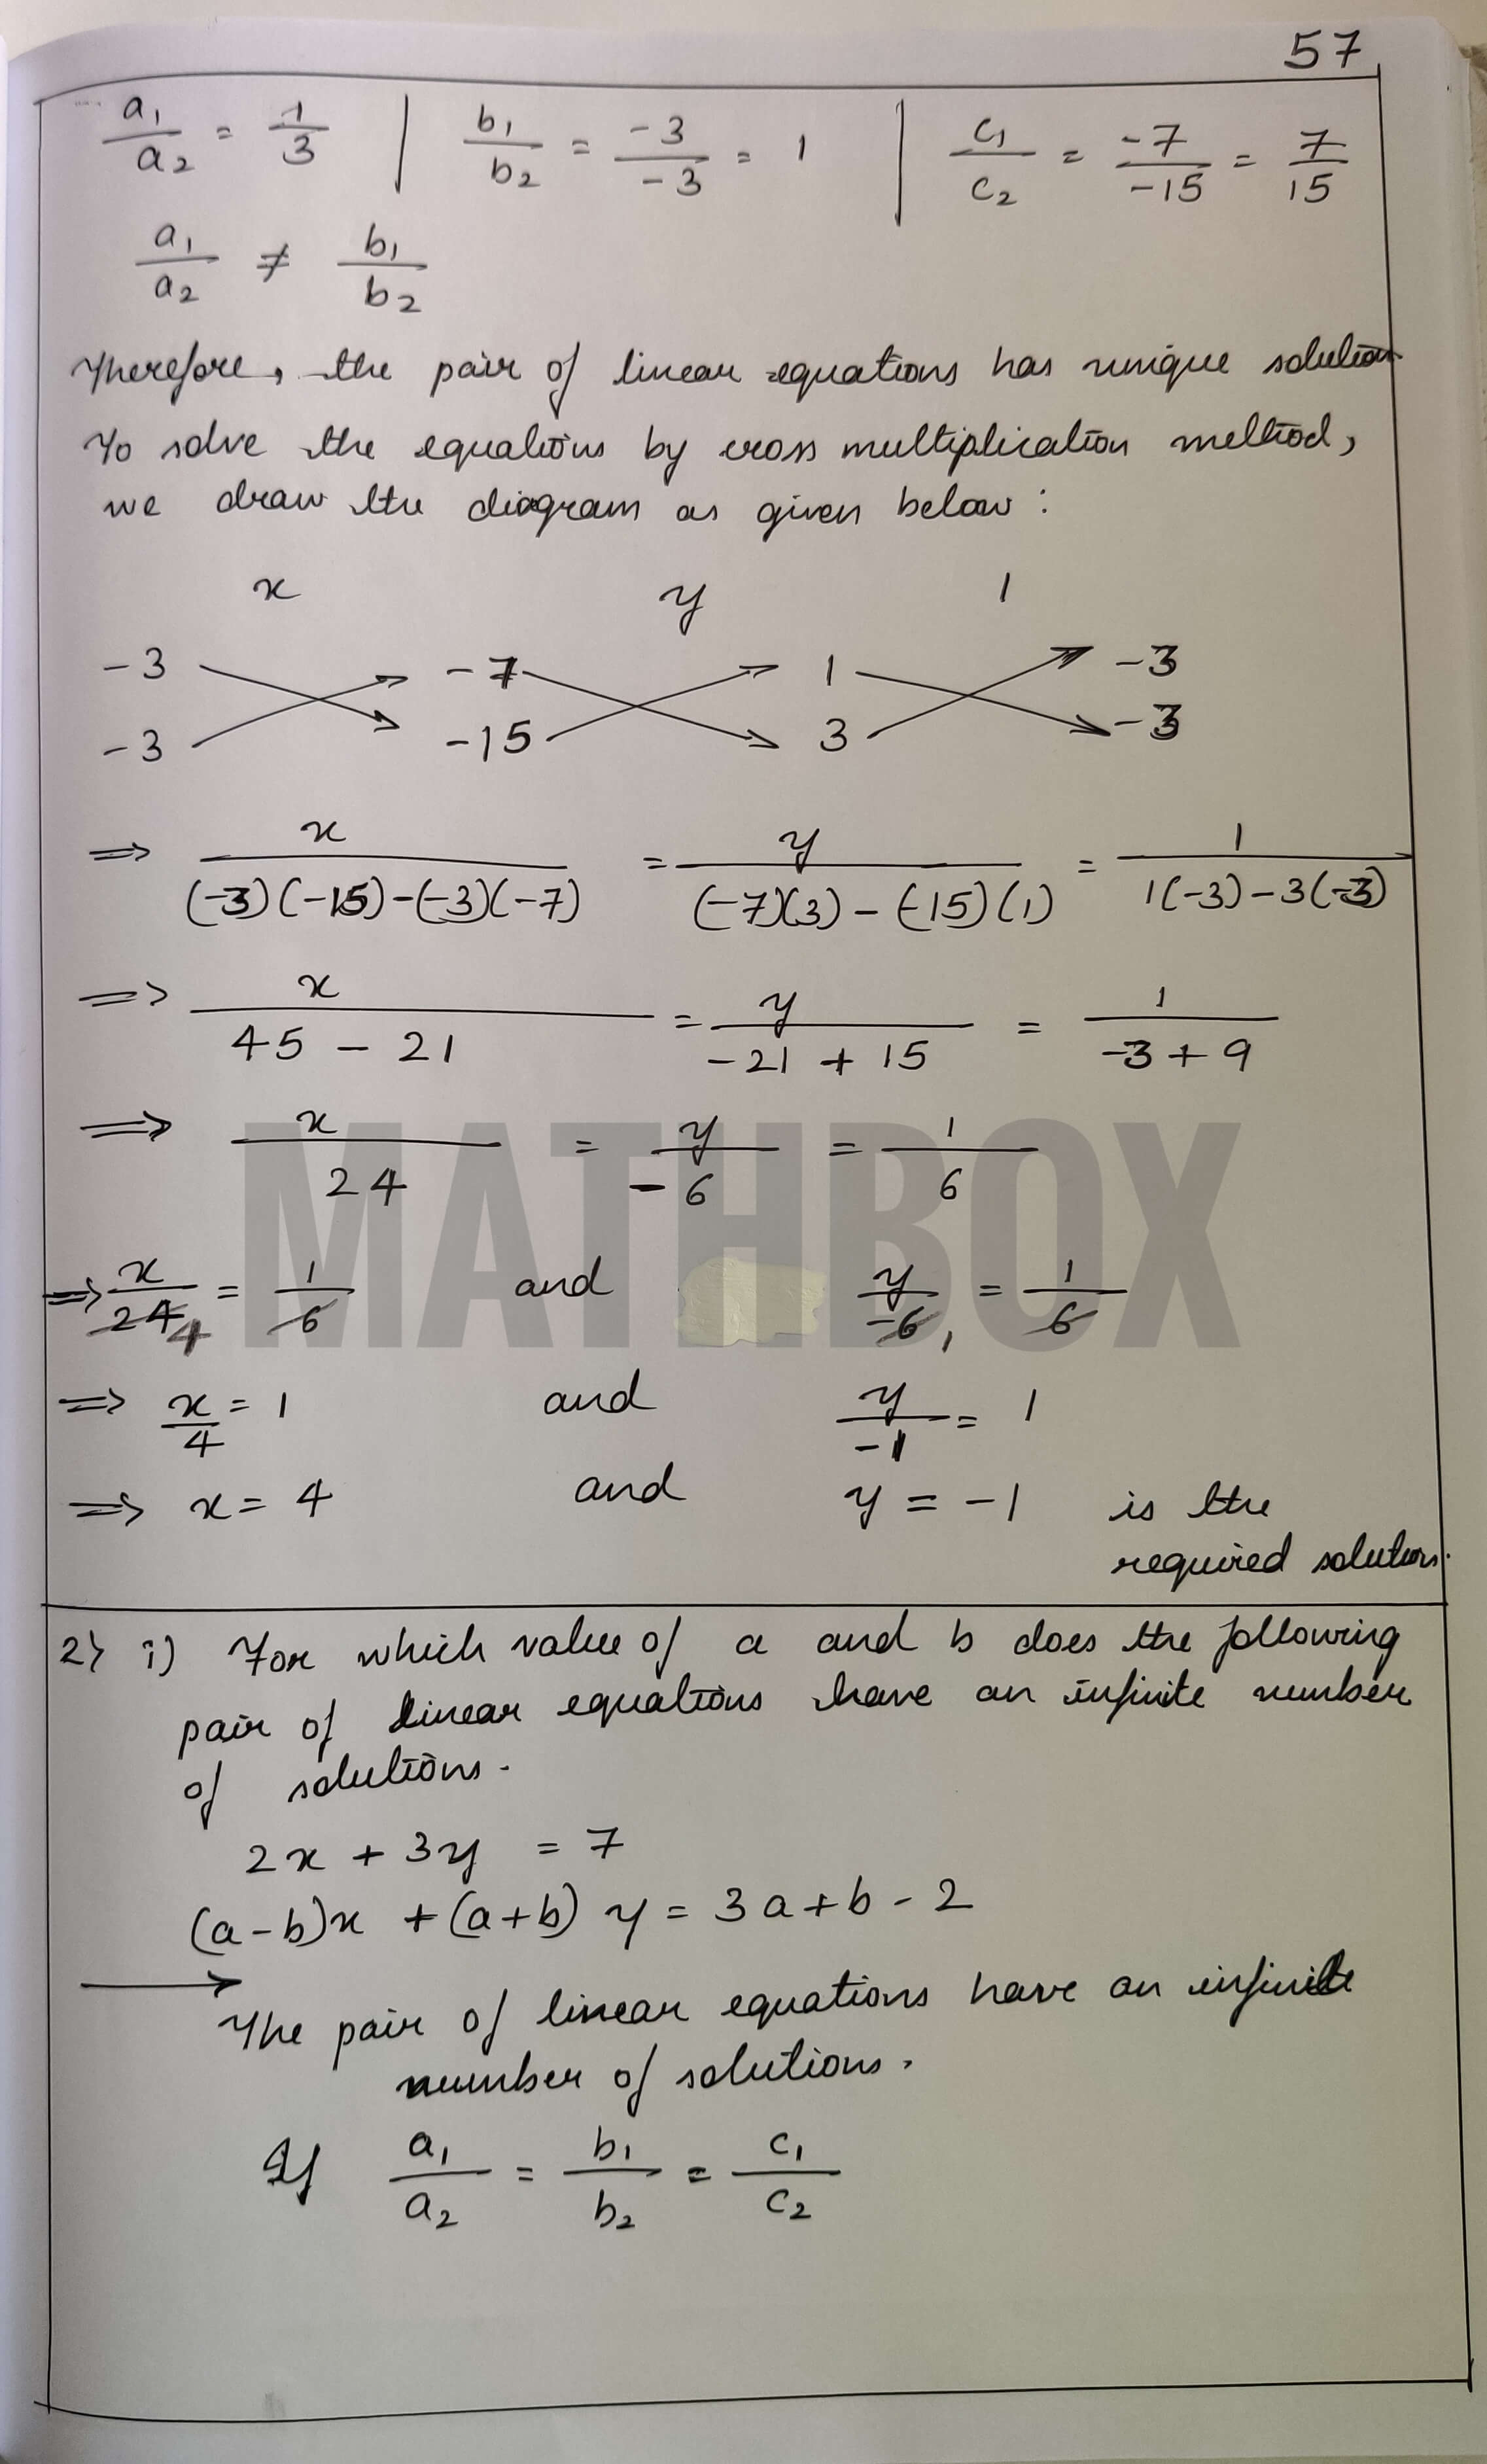 57
a₁/a₂ = 1/3 | b₁/b₂ = -3/-3 = 1 | c₁/c₂ = -7/-15 = 7/15
a₁/a₂ ≠ b₁/b₂
Therefore, the pair of linear equations has unique solution
To solve the equations by cross multiplication method,
we draw the diagram as given below :
x y 1
-3 -7 1 -3
-3 -15 3 -3
⇒ x/((-3)(-15)-(-3)(-7)) = y/((-7)(3) - (-15)(1)) = 1/(1(-3)-3(-3))
⇒ x/(45 - 21) = y/(-21 + 15) = 1/(-3 + 9)
MATHBOX
⇒ x/24 = y/-6 = 1/6
⇒ x/24 4 = 1/6 and y/-6 1 = 1/6
⇒ x/4 = 1 and y/-1 = 1
⇒ x = 4 and y = -1 is the
required solution.
2) i) For which value of a and b does the following
pair of linear equations have an infinite number
of solutions.
2x + 3y = 7
(a-b)x + (a+b) y = 3a+b-2
→
The pair of linear equations have an infinite
number of solutions.
If a₁/a₂ = b₁/b₂ = c₁/c₂